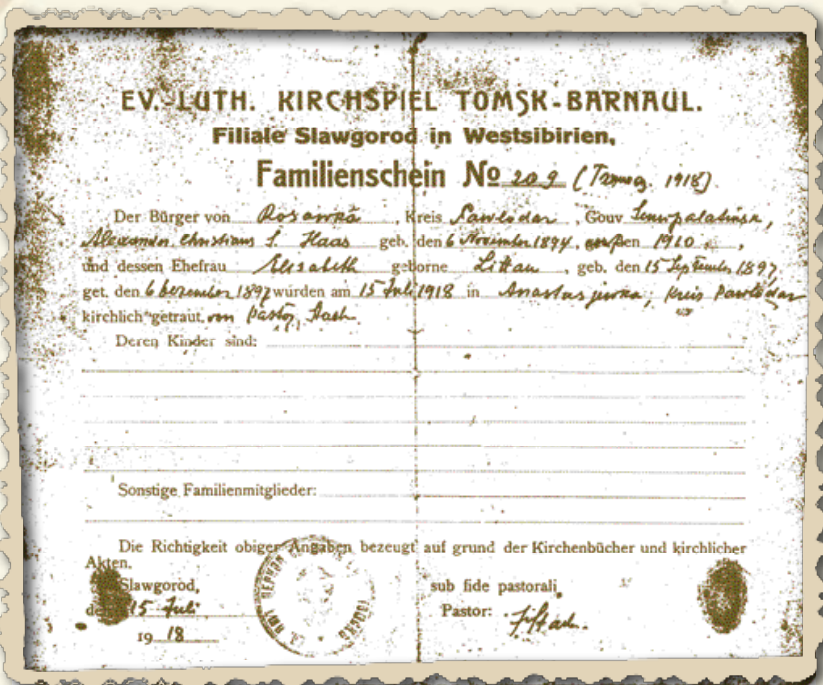 EV.-LUTH. KIRCHSPIEL TOMSK-BARNAUL.
Filiale Slawgorod in Westsibirien,
Familienschein No 209 (1918).
Der Bürger von Rosawka, Kreis Pawlodar, Gouv.
Alexander, Christians S. Haas geb. den 6 November 1894, 1910
und dessen Ehefrau Elisabeth geborne Littau, geb. den 15 September 1897,
get. den 6 Dezember 1897 wurden am 15 Juli 1918 in Kreis Pawlodar
kirchlich getraut, von Pastor Stach.
Deren Kinder sind:
Sonstige Familienmitglieder:
Die Richtigkeit obiger Angaben bezeugt auf grund der Kirchenbücher und kirchlicher
Akten.
Slawgorod,
sub fide pastorali,
den 15 Juli
Pastor: Stach.
19 18